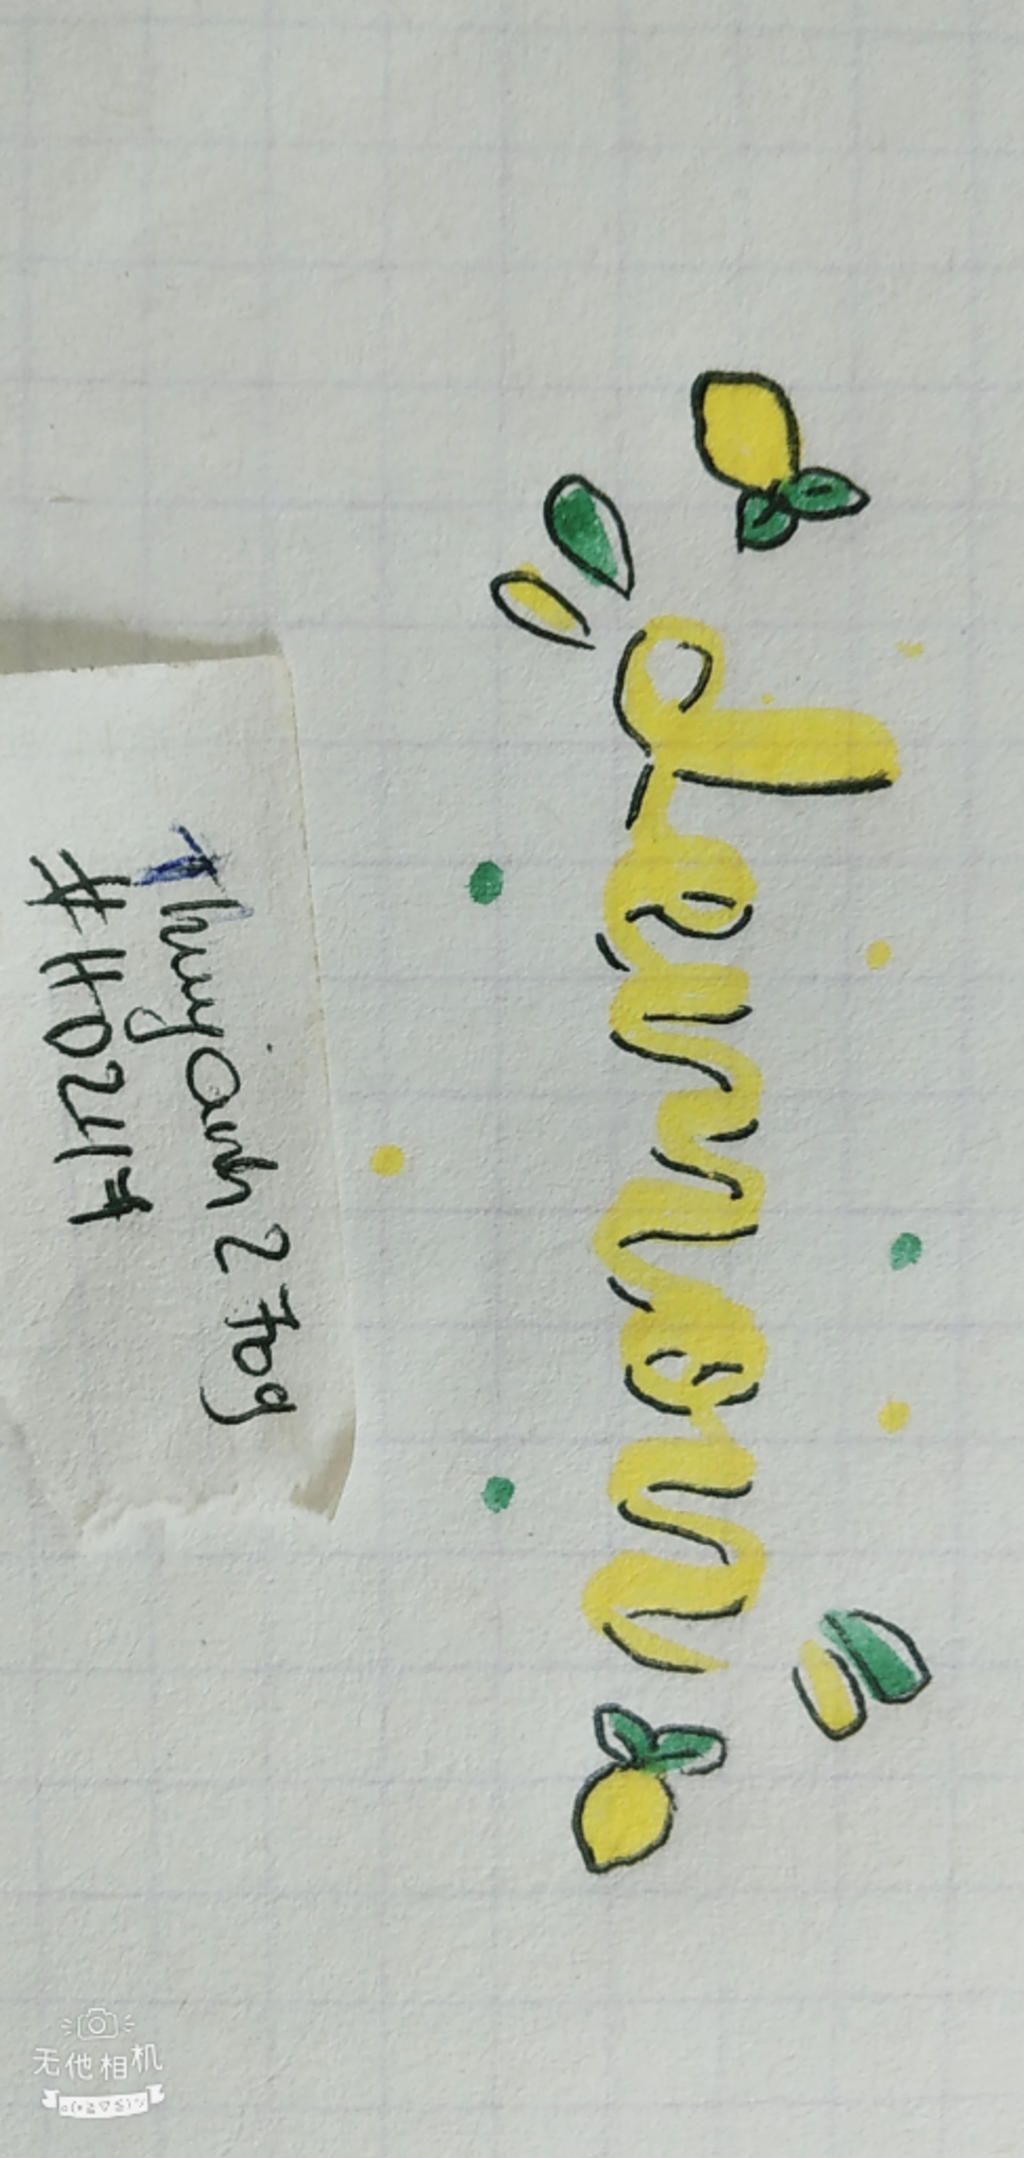 Lemon
Thuyanh2709
#HD2417
无他相机